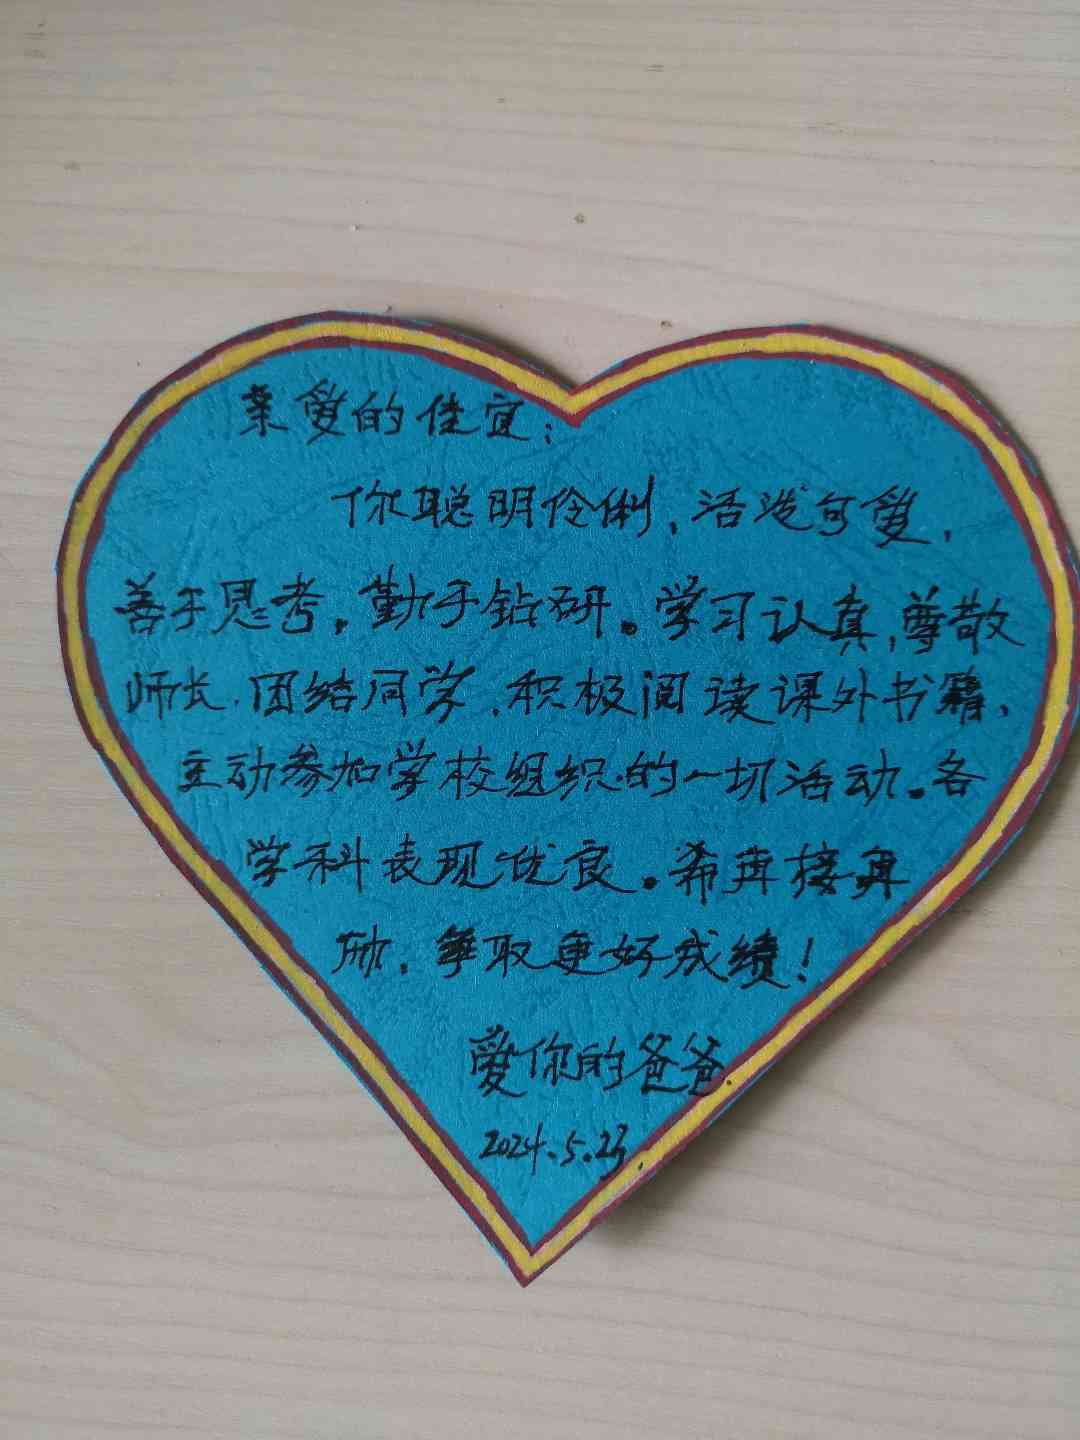 亲爱的佳宜:
你聪明伶俐,活泼可爱,
善于思考,勤于钻研。学习认真,尊敬
师长,团结同学,积极阅读课外书籍,
主动参加学校组织的一切活动。各
学科表现优良。希再接再
励,争取更好成绩!
爱你的爸爸.
2024.5.23.